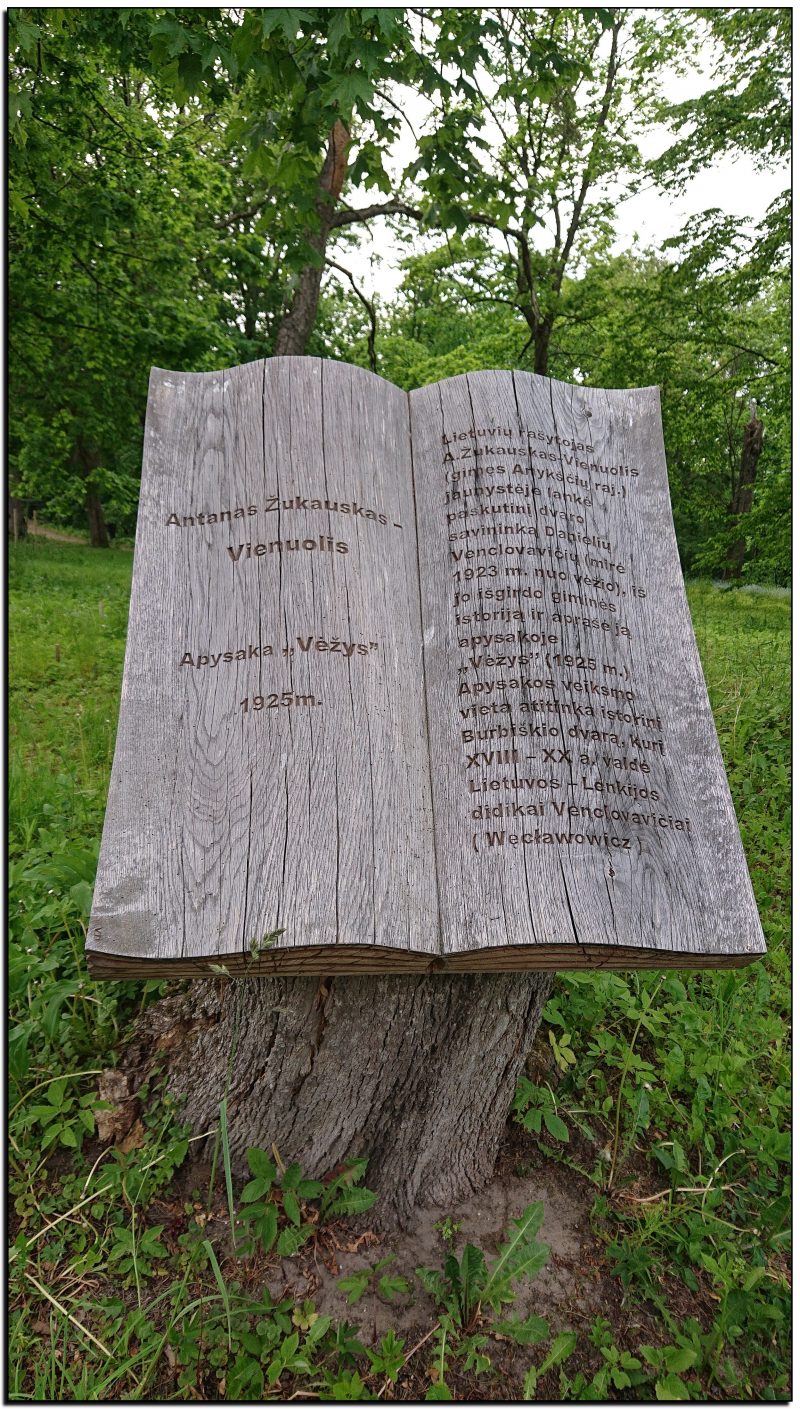 Antanas Žukauskas –
Vienuolis
Apysaka „Vėžys”
1925m.
Lietuvių rašytojas
A.Žukauskas-Vienuolis
(gimęs Anykščių raj.)
jaunystėje lankė
paskutinį dvaro
savininką Danielių
Venclovavičių (mirė
1923 m. nuo vėžio), iš
jo išgirdo giminės
istoriją ir aprašė ją
apysakoje
„Vėžys” (1925 m.)
Apysakos veiksmo
vieta atitinka istorinį
Burbiškio dvarą, kurį
XVIII – XX a. valdė
Lietuvos – Lenkijos
didikai Venclovavičiai
( Węcławowicz )